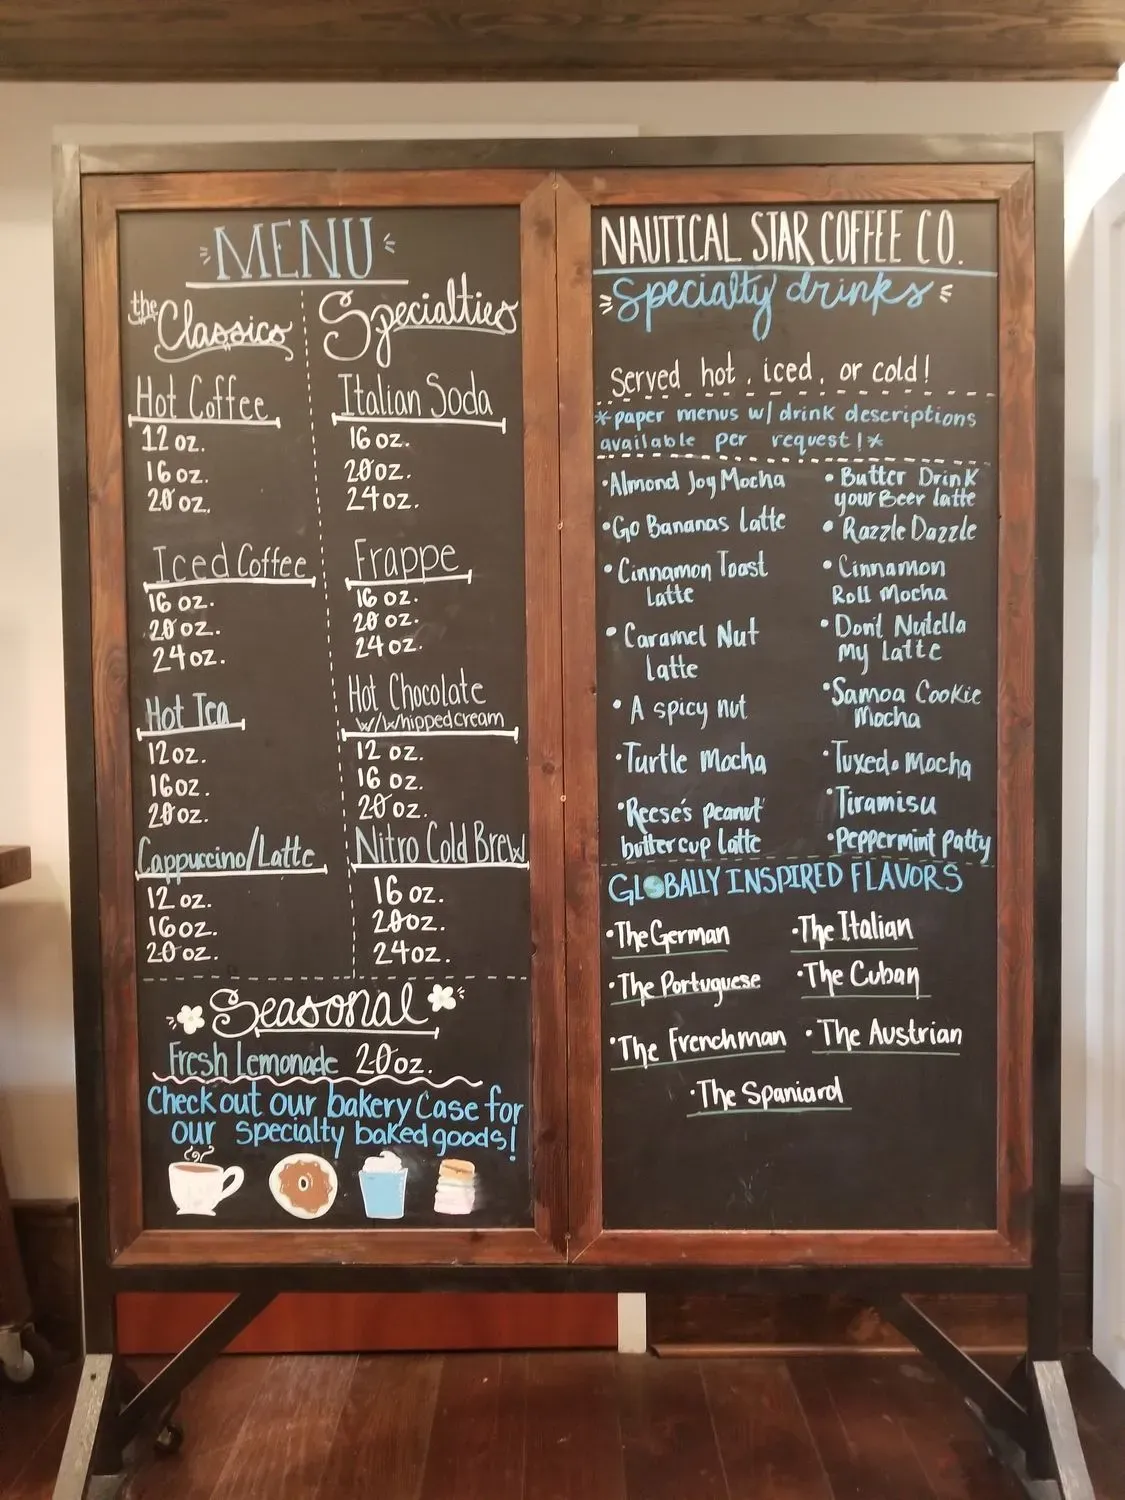 MENU
the Classics
Hot Coffee
12 oz.
16 oz.
20 oz.
Iced Coffee
16 oz.
20 oz.
24 oz.
Hot Tea
12 oz.
16 oz.
20 oz.
Cappuccino/Latte
12 oz.
16 oz.
20 oz.
Specialties
Italian Soda
16 oz.
20 oz.
24 oz.
Frappe
16 oz.
20 oz.
24 oz.
Hot Chocolate
w/whipped cream
12 oz.
16 oz.
20 oz.
Nitro Cold Brew
16 oz.
20 oz.
24 oz.
Seasonal
Fresh Lemonade 20 oz.
Check out our bakery case for
our specialty baked goods!
NAUTICAL STAR COFFEE CO.
Specialty drinks
Served hot, iced, or cold!
*paper menus w/ drink descriptions
available per request!*
•Almond Joy Mocha
•Go Bananas Latte
•Cinnamon Toast
Latte
•Caramel Nut
Latte
•A spicy nut
•Turtle Mocha
•Reese's peanut
butter cup latte
•Butter Drink
your Beer latte
•Razzle Dazzle
•Cinnamon
Roll Mocha
•Don't Nutella
My Latte
•Samoa Cookie
Mocha
•Tuxedo Mocha
•Tiramisu
•Peppermint Patty
GLOBALLY INSPIRED FLAVORS
•The German
•The Italian
•The Portuguese
•The Cuban
•The Frenchman
•The Austrian
•The Spaniard